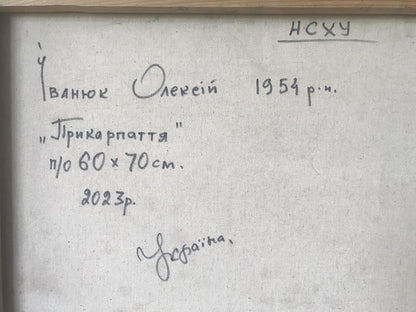 НСХУ
Іванюк Олексій 1954 р.н.
„Прикарпаття"
п/о 60 х 70 см.
2023р.
Україна.